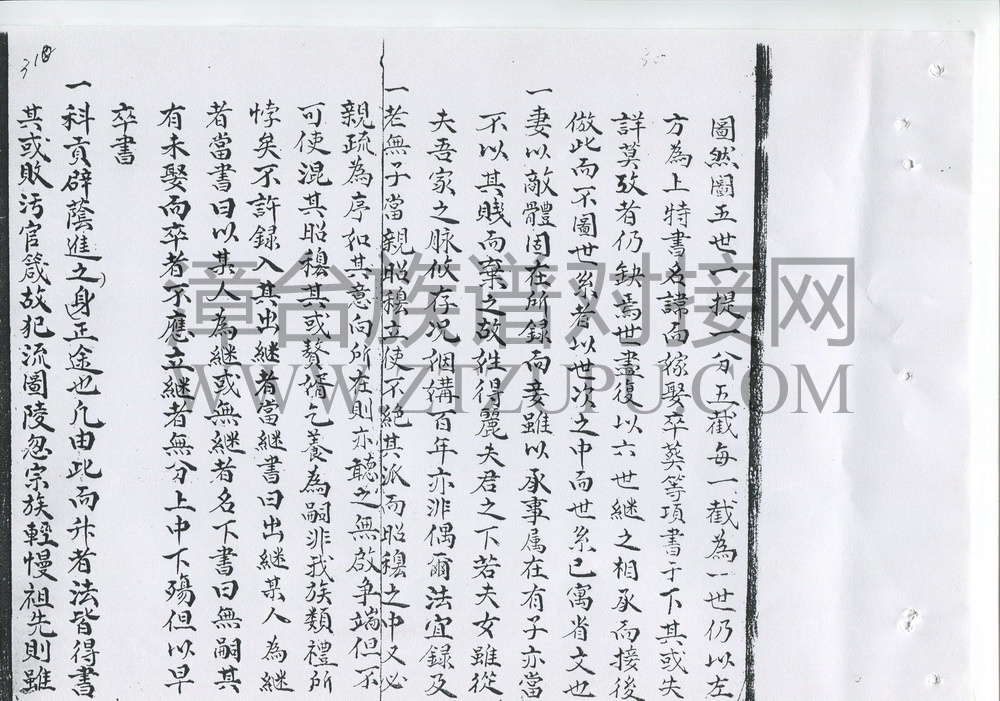 圖然圖五世一提一分五截每一截為一世仍以左
方為上特書名諱而嫁娶卒葵等項書于下其或失
詳莫攷者仍缺焉世盡復以六世継之相承而接後
倣此而不圖世系者以世次之中而世系已寓省文也
一妻以敵體固在所録而妾雖以承事属在有子亦當
不以其賎而棄之故姓得麗夫君之下若夫女雖從
夫吾家之脉攸存况姻媾百年亦非偶爾法宜録及
一老無子當親昭穆立使不絕其派而昭穆之中又必
親疏為序如其意向所在則亦聼之無啟争端但不
可使混其昭穆其或贅婿乞養為嗣非我族類禮所
悖矣不許録入其出継者當継書曰出継某人為継
者當書曰以某人為継或無継者名下書曰無嗣其
有未娶而卒者不應立継者無分上中下殤但以早
卒書
一科貢辟蔭進之身正途也凢由此而升者法皆得書
其或敗污官箴故犯流圖陵忽宗族輕慢祖先則雖
310
章台族谱对接网
WWW.ZTZUPU.COM